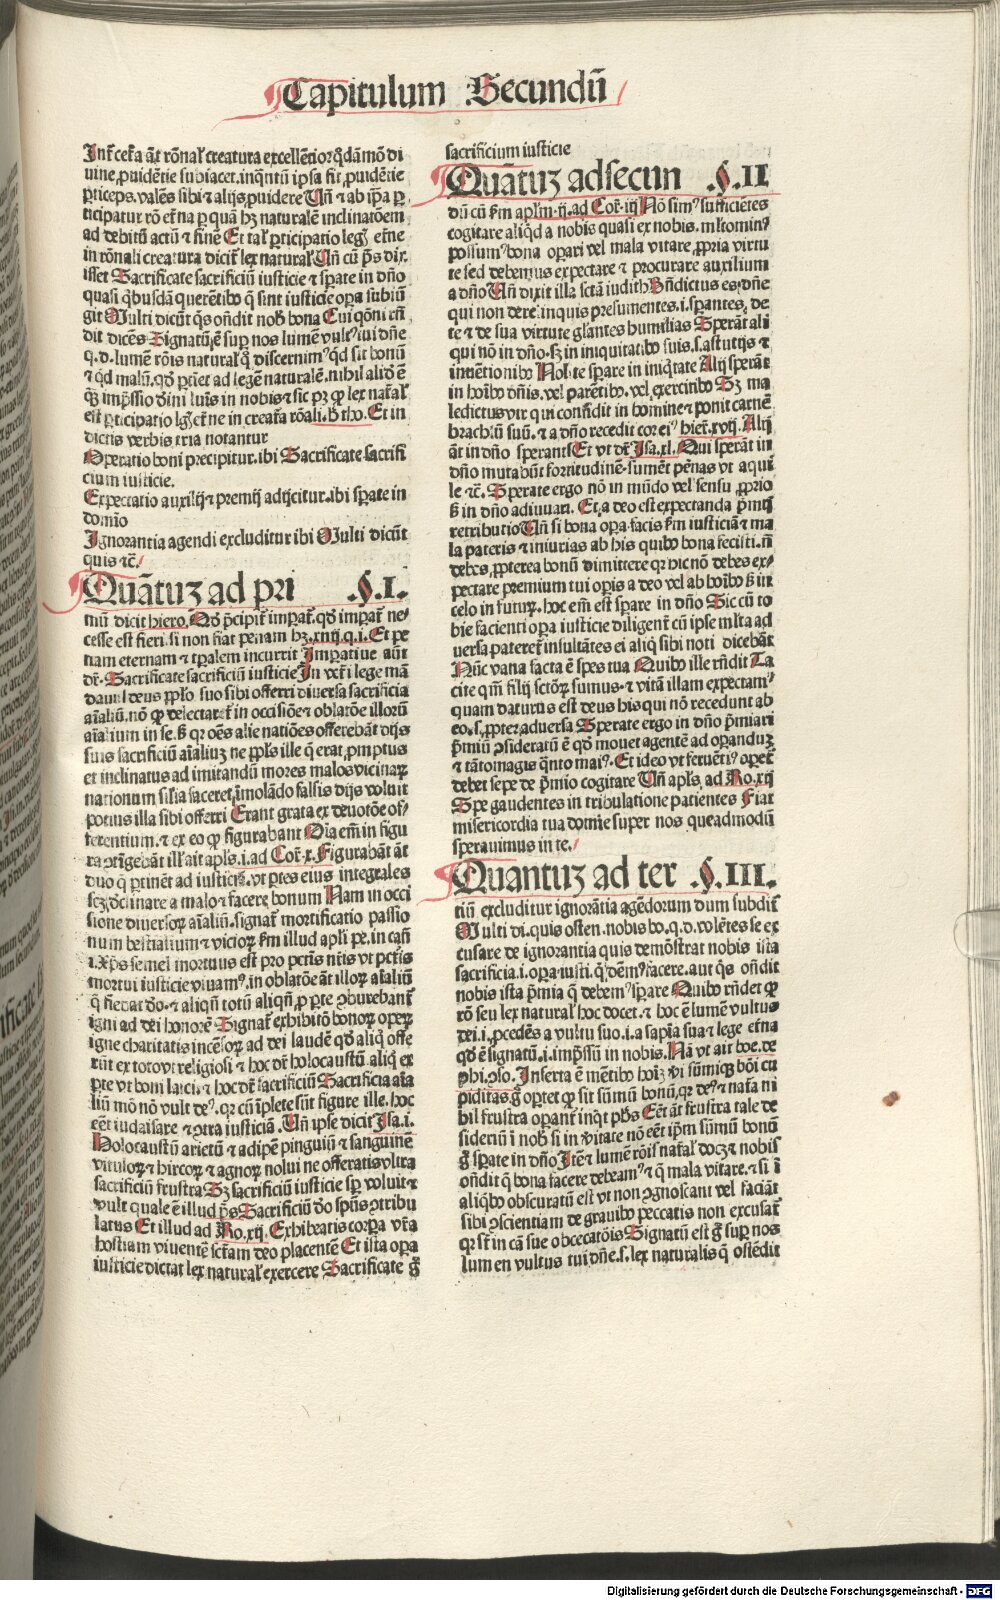 Capitulum Secundū
Inf cetͤa āt rōnal' creatura excellētiori qdā mō di
uine ꝓuidētie subiacet. inqntū ipsa fit ꝓuidētie
ꝑticeps. valēs sibi ⁊ alijs ꝓuidere Uñ ⁊ ab ipa ꝑ
ticipatur rō etͤna ꝑ quā hꝫ naturalē inclinatōem
ad debitū actū ⁊ finē Et tal' ꝑticipatio legꝭ etͤne
in rōnali creatura dicit' lex natural' Uñ cū ps̄ dix
isset Sacrificate sacrificiū iusticie ⁊ spate in dño
quasi qbusdā querētibꝰ q̄ sint iusticie oꝑa subiū
git Multi dicūt qs ondit nob bona Cui qōni rn̄
dit dicēs Signatū ē sup nos lumē vult' tui dn̄e
q. d. lumē rōis natural' q̄ discernimꝰ qd sit bonū
⁊ qd malū. qd ꝑtiet ad legē naturalē. nihil aliō ē
q̄ imp̄ssio dini luīs in nobis ⁊ sic pꝫ qꝙ lex nat'al'
est ꝑticipatio lgꝭ etͤne in creata rōali. h tho. Et in
dictis verbis tria notantur
Operatio boni precipitur. ibi Sacrificate sacrifi
cium iusticie.
Expectatio auxilij ⁊ premij adijcitur. ibi sperate in
domīo
Ignorantia agendi excluditur ibi Multi dicūt
quis ⁊c̄.
Quātuꝫ ad pri §. I.
mū dicit hiero. Qd p̄cipit' imꝑat'. qd imꝑat' ne
cesse est fieri. si non fiat penam hꝫ. xiiij. q. i. Et pe
nam eternam ⁊ tꝑalem incurrit Imꝑatiue aūt
dr̄. Sacrificate sacrificiū iusticie In vet'i lege mā
dauit deus ppl'o suo sibi offerri diuersa sacrificia
aīaliū. nō ꝙ delectaret' in occisiōe ⁊ oblatōe illorū
aīalium in se. s qr oēs alie natiōes offerebāt dijs
suis sacrificiū aīaliuꝫ ne ppl's ille q̄ erat ꝓmptus
et inclinatus ad imitandū mores malos vicinaꝝ
nationum silia faceret imolādo falsis dijs voluit
potius illa sibi offerri Erant grata ex deuotōe of
ferentium. ⁊ ex eo ꝙ figurabant Oīa em̄ in figu
ra ꝯtigebāt ill' ait apl's. i. ad Cor. x. Figurabāt āt
duo q̄ ꝑtinēt ad iusticiā. vt ꝑtes eius integrales
scꝫ declinare a malo ⁊ facere bonum Nam in occi
sione diuersoꝝ aīaliū. signat' mortificatio passio
num bestialium ⁊ vicioꝝ ẜm illud apl'i pe. in caṅ
i. Xp̄s semel mortuus est pro pctīs nr̄is vt pctīs
mortui iusticie viuamꝰ. in oblatōe āt illoꝝ aīaliū
q̄ fiebat dō. ⁊ aliqn̄ totū aliqn̄ ꝓ ꝑte ꝯburebant'
igni ad dei honorē Signat' exhibitō bonoꝝ opeꝝ
igne charitatis incēsoꝝ ad dei laudē qd aliq̄ offe
rūt ex toto vt religiosi ⁊ hoc dr̄ holocaustū aliq̄ ex
ꝑte vt boni laici ⁊ hoc dr̄ sacrificiū Sacrificia aīa
liū mō nō vult deꝰ. qr cū īplete sūt figure ille. hoc
eēt iudaisare ⁊ ꝯtra iusticiā. Uñ ipse dicit Isa. i.
Holocaustū arietū ⁊ adipē pinguiū ⁊ sanguinē
vituloꝝ ⁊ hircoꝝ ⁊ agnoꝝ nolui ne offeratis vltra
sacrificiū frustra Sꝫ sacrificiū iusticie sp voluit ⁊
vult quale ē illud ps̄ Sacrificiū dō spūs ꝯtribu
latus Et illud ad Ro. xij. Exhibeatis corꝑa vr̄a
hostiam viuentē sctam deo placentē Et ista opa
iusticie dictat lex natural' exercere Sacrificate g̊
sacrificium iusticie
Quātuꝫ ad secun §. II
dū cū ẜm apl'm. ij. ad Cor. iij Nō simꝰ sufficiētes
cogitare aliqd a nobis quasi ex nobis. ml'tominꝰ
possumꝰ bona opari vel mala vitare ꝓpria virtu
te sed debemus expectare ⁊ procurare auxilium
a dño Uñ dixit illa sctā iudith Bn̄dictus es dn̄e
qui non derelinquis presumentes. i. sꝑantes de
te ⁊ de sua virtute gl'antes humilias Sperāt ali
qui nō in dño. sꝫ in iniquitatibꝰ suis. s. astutijs ⁊
intētionibꝰ Nolite sꝑare in iniq̄tate Alij sperāt
in hoībꝰ dñis. vel parētibꝰ. vel exercitibꝰ Sꝫ ma
ledictus vir qui confidit in homine ⁊ ponit carnē
brachiū suū. ⁊ a dño recedit cor eiꝰ hieꝝ. xvij. Alij
āt in dño sperant Et vt dr̄ Isa. xl. Qui sperāt in
dño mutabūt fortitudinē. sument pēnas vt aqui
le ⁊c̄. Sperate ergo nō in mūdo vel sensu ꝓprio
s in dño adiuuari. Et a deo est expectanda p̄mij
retributio Uñ si bona opa facis ẜm iusticiā ⁊ ma
la pateris ⁊ iniurias ab his quibꝰ bona fecisti. nō
debes ꝓpterea bonū dimittere qr hic nō debes ex
pectare premium tui opis a deo vel ab hoībꝰ s in
celo in futuꝝ. hoc em̄ est sꝑare in dño Sic cū to
bie facienti opa iusticie diligent' cū ipse ml'ta ad
uersa pateret' insultātes ei aliq̄ sibi noti dicebāt
Nūc vana facta ē spes tua Quibꝰ ille rn̄dit Ta
cite qm̄ filij sctōꝝ sumus. ⁊ vitā illam expectamꝰ
quam daturus est deus his qui nō recedunt ab
eo. s. ꝓpter aduersa Sperate ergo in dño p̄miari
p̄miū ꝯsideratū ē qd mouet agentē ad operanduꝫ
⁊ tātomagis q̄nto maiꝰ. Et ideo vt feruētiꝰ opet'
debet sepe de p̄mio cogitare Uñ apl's ad Ro. xij
Spe gaudentes in tribulatione patientes Fiat
misericordia tua domīe super nos queadmodū
sperauimus in te.
Quantuꝫ ad ter §. III.
tiū excluditur ignorātia agēdorum dum subdit'
Multi di. quis osten. nobis bo. q. d. volētes se ex
cusare de ignorantia quis demōstrat nobis ista
sacrificia. i. opa iusti. q̄ dēmꝰ facere. aut qs ondit
nobis ista p̄mia q̄ debemꝰ sꝑare Quibꝰ rn̄det ꝙ
rō seu lex natural' hoc docet. ⁊ hoc ē lumē vultus
dei. i. ꝓcedēs a vultu suo. i. a sapīa sua ⁊ lege etͤna
qd ē signatū. i. imp̄ssū in nobis. Nā vt ait boe. de
ꝯhi. ꝯlo. Inserta ē mētibꝰ hoīꝫ vi sūmiqꝫ bōi cu
piditas. g̊ oportet ꝙ sit sūmū bonū. qr deꝰ ⁊ nat'a ni
bil frustra oparit' inqt pħs Eēt āt frustra tale de
siderium ī nob si in p̄tate nō eēt ip̄m sūmū bonū
g̊ sꝑate in dño Itē ⁊ lumē rōis nat'al' docꝫ ⁊ nobis
ondit q̄ bona facere debeamꝰ ⁊ q̄ mala vitare. ⁊ si ī
aliqbꝰ obscuratū est vt non ꝯgnoscant vel faciāt
sibi ꝯscientiam de grauibꝰ peccatis non excusat'
qr st' in cā sue obcecatōis Signatū est g̊ sup nos
lum en vultus tui dñe. s. lex naturalis q̄ ostēdit
Digitalisierung gefördert durch die Deutsche Forschungsgemeinschaft - DFG